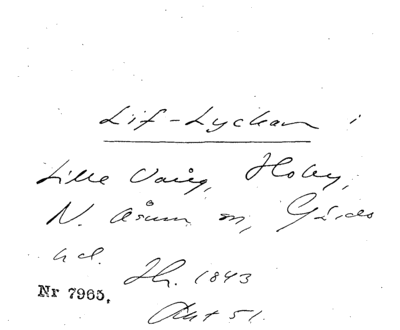 Lif-Lyckan i
Lille Vång, Hoby,
N. Åsum m, Gärds
hd. Hr. 1843
Nr 7965.
Akt 51.